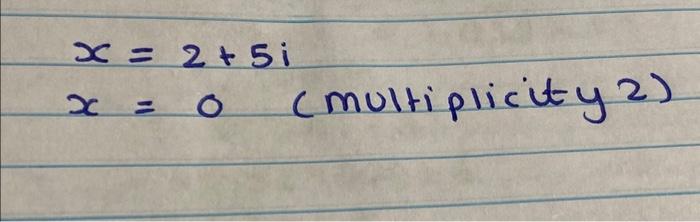 x = 2 + 5i
x = 0 (multiplicity 2)